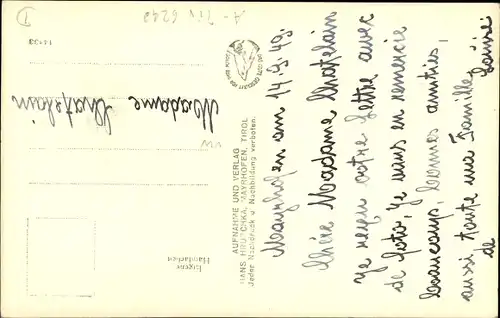 I
A-Tir 6240
14133
Madame
Chatelain
vw
Eigene
Handarbeit
AUFNAHME UND VERLAG
HANS HRUSCHKA, MAYRHOFEN, TIROL
Jeder Nachdruck u. Nachbildung verboten.
Mayrhofen am 14.9.49.
Chère Madame Chatelain
Je reçu votre lettre avec
de foto, je vous en remercie
beaucoup, bonnes amitiés,
aussi toute ma Famille
de Louise